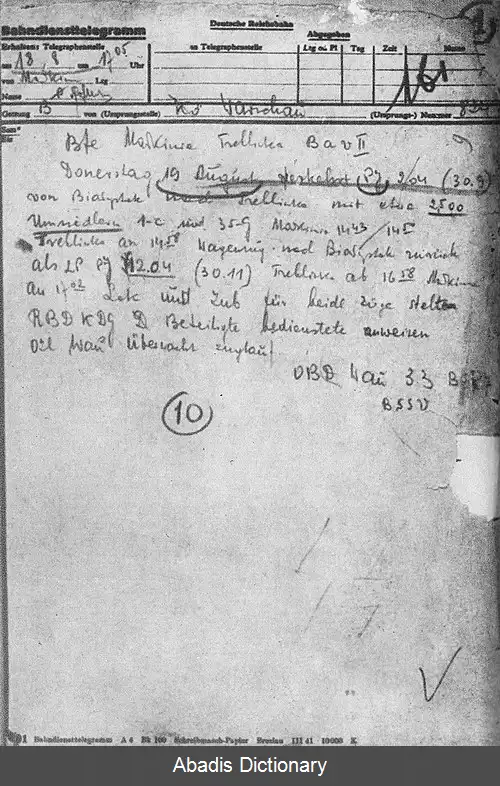 Deutsche Reichsbahn
Bahndiensttelegramm
Abgegeben
Erhalten: Telegraphenstelle
an Telegraphenstelle Ltg od. Pl Tag Zeit Name
am 18. 8. um 17 05 Uhr
von Malkinia Ltg
161
Name
Gattung B von (Ursprungsstelle) Ko Warschau (Ursprungs-) Nummer
9
Bfe Malkinia Treblinka Bav II
Donnerstag 19 August verkehrt Pj 204 (30.9)
von Bialystok nach Treblinka mit etwa 2500
Umsiedlern 1-C und 35-G Malkinia 1443 / 145
Treblinka an 14 58 Wagenzug nach Bialystok zurück
als LP Pj 1204 (30.11) Treblinka ab 16 58 Malkinia
an 17 02 Lok und Zub für beide Züge stellen
RBD Kbg Beteiligte Bedienstete anweisen
Ozl Wau überwacht Zuglauf
OBD Wau 33
10
Bahndiensttelegramm A 4 Bk 100 Schreibmasch-Papier Breslau III 41 10000 K
Abadis Dictionary